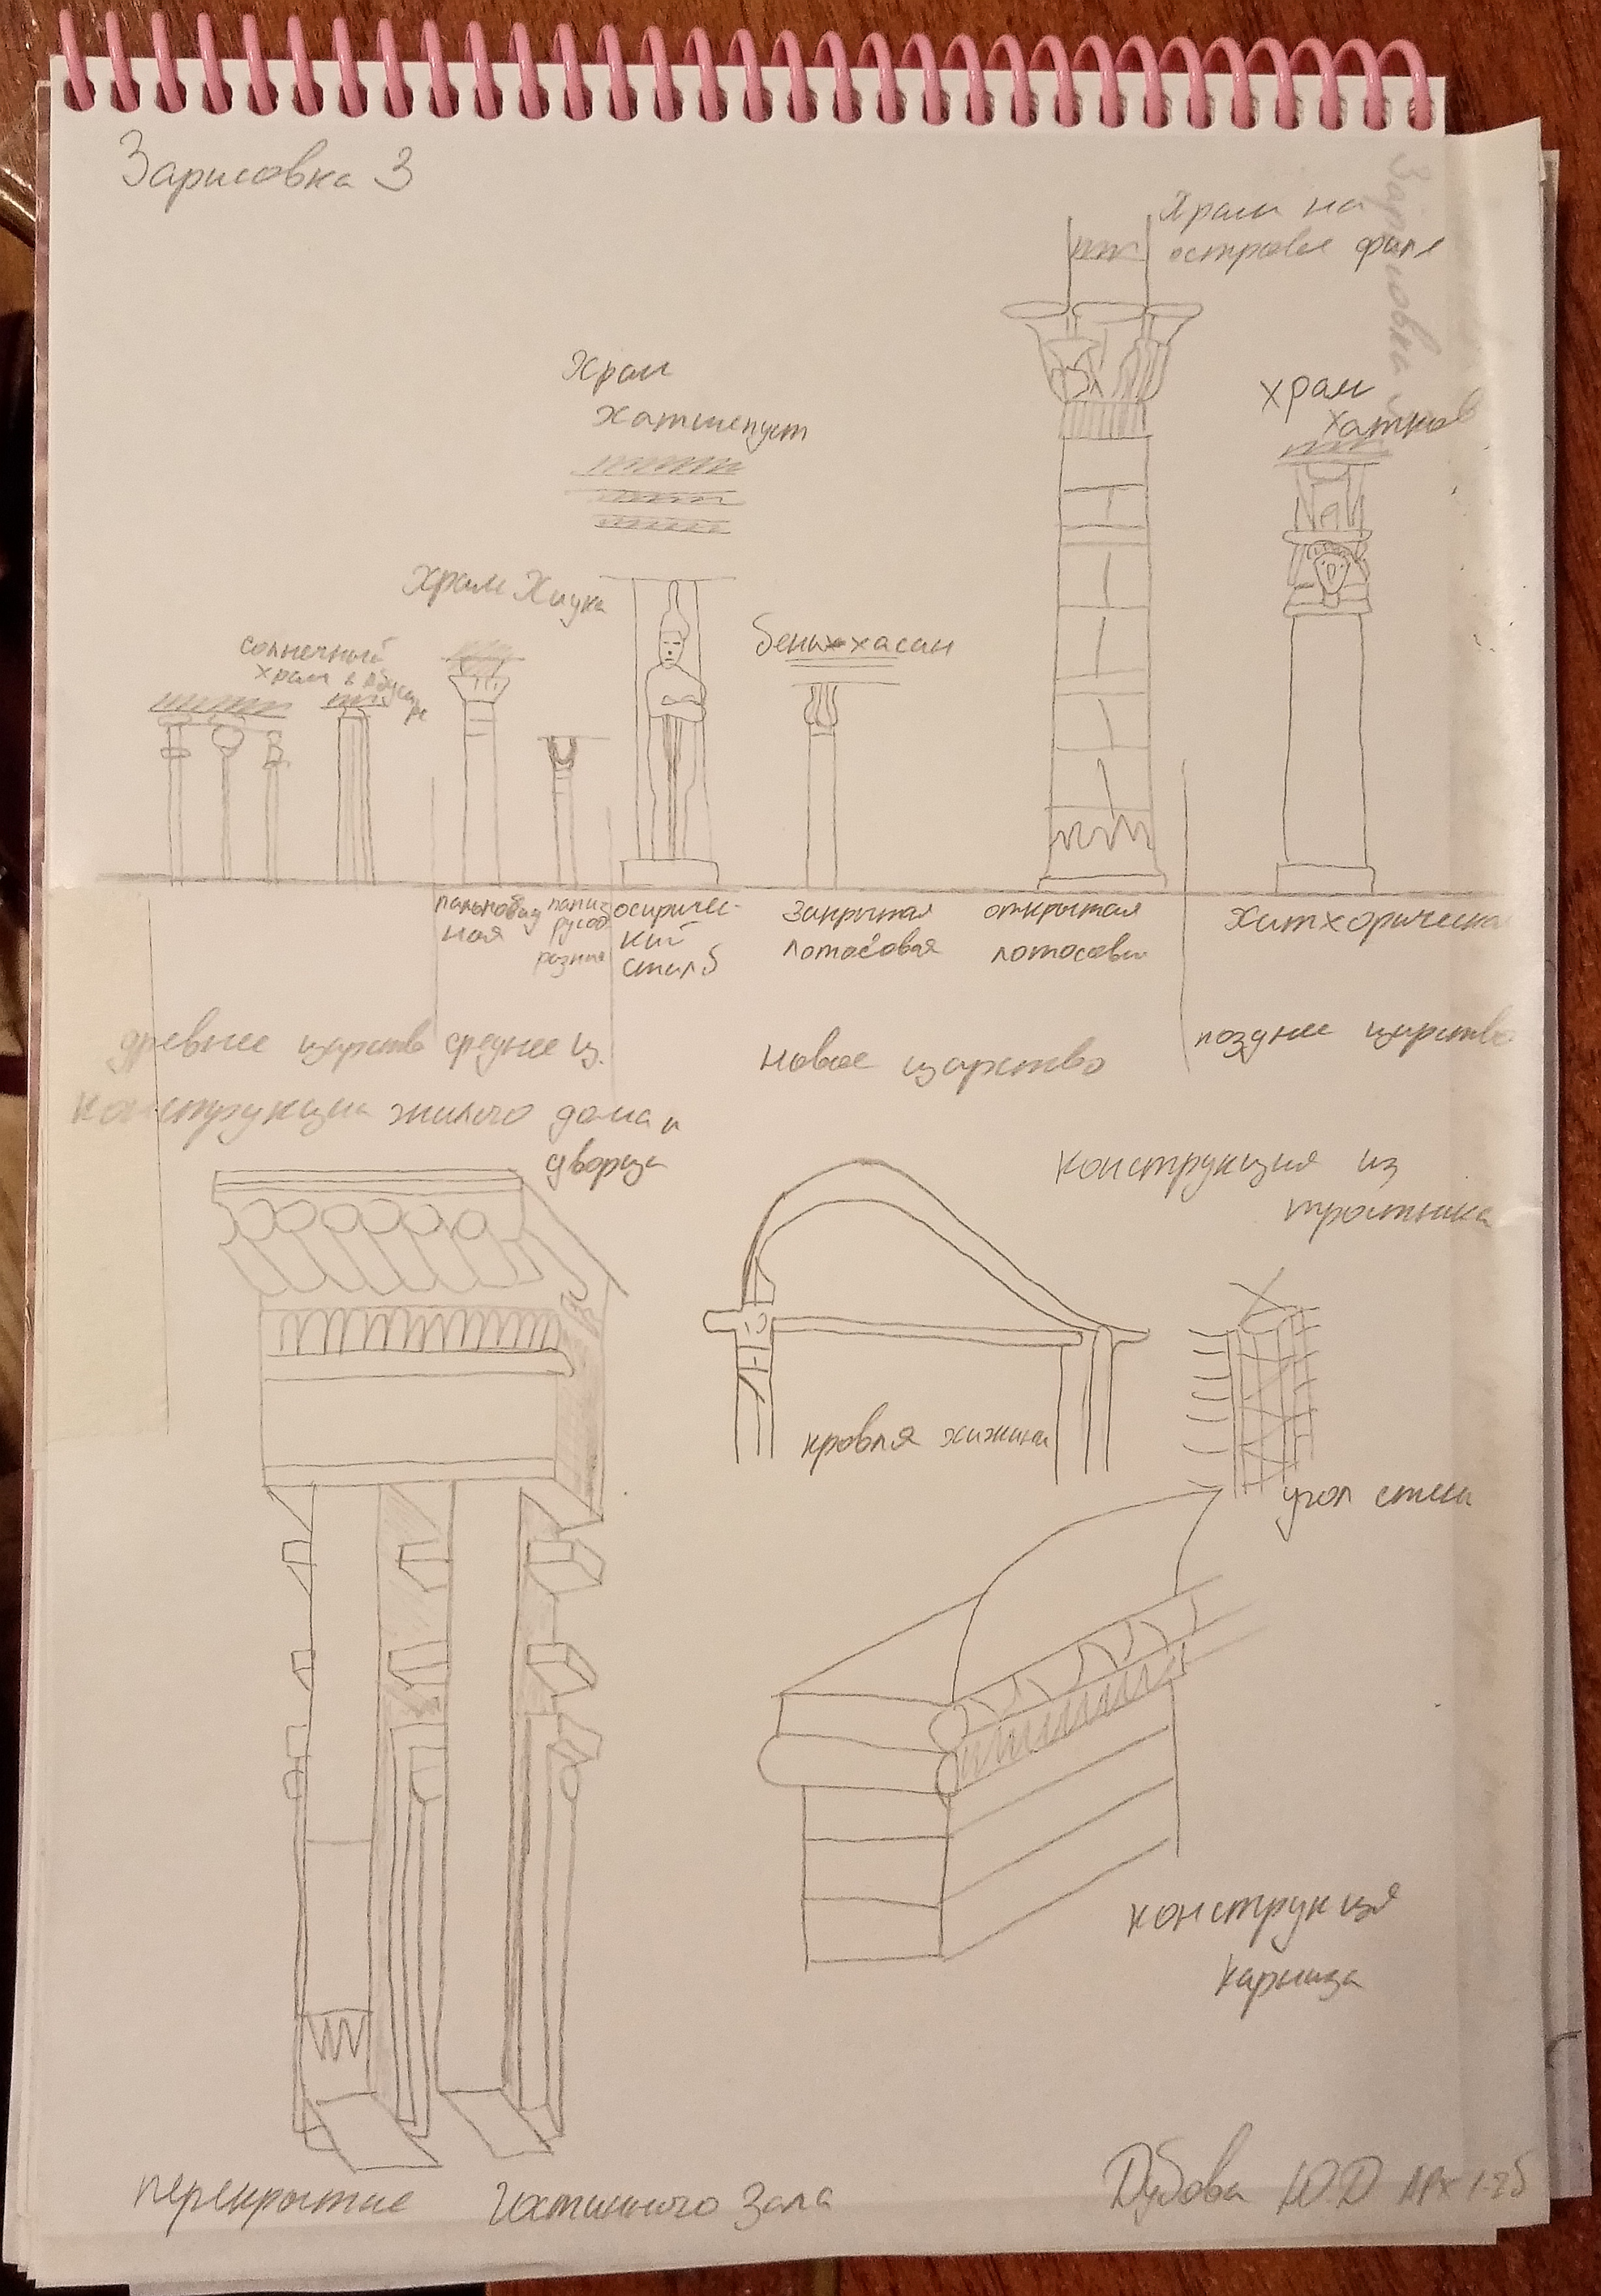 Зарисовка 3
Храм на
острове филе
Храм
Хатшепсут
храм
Храм Хнука
солнечный
храм в Абуси
ре
бени-хасан
пальмовид
ная
папи
русоо
разная
осиричес-
кий
столб
закрытая
лотосовая
открытая
лотосовая
Хатхорическая
древнее царство
среднее ц.
новое царство
позднее царство
конструкция жилого дома и
дворца
конструкция из
тростника
кровля хижины
угол стены
конструкция
карниза
перекрытие
зала
Дубова Ю.Д